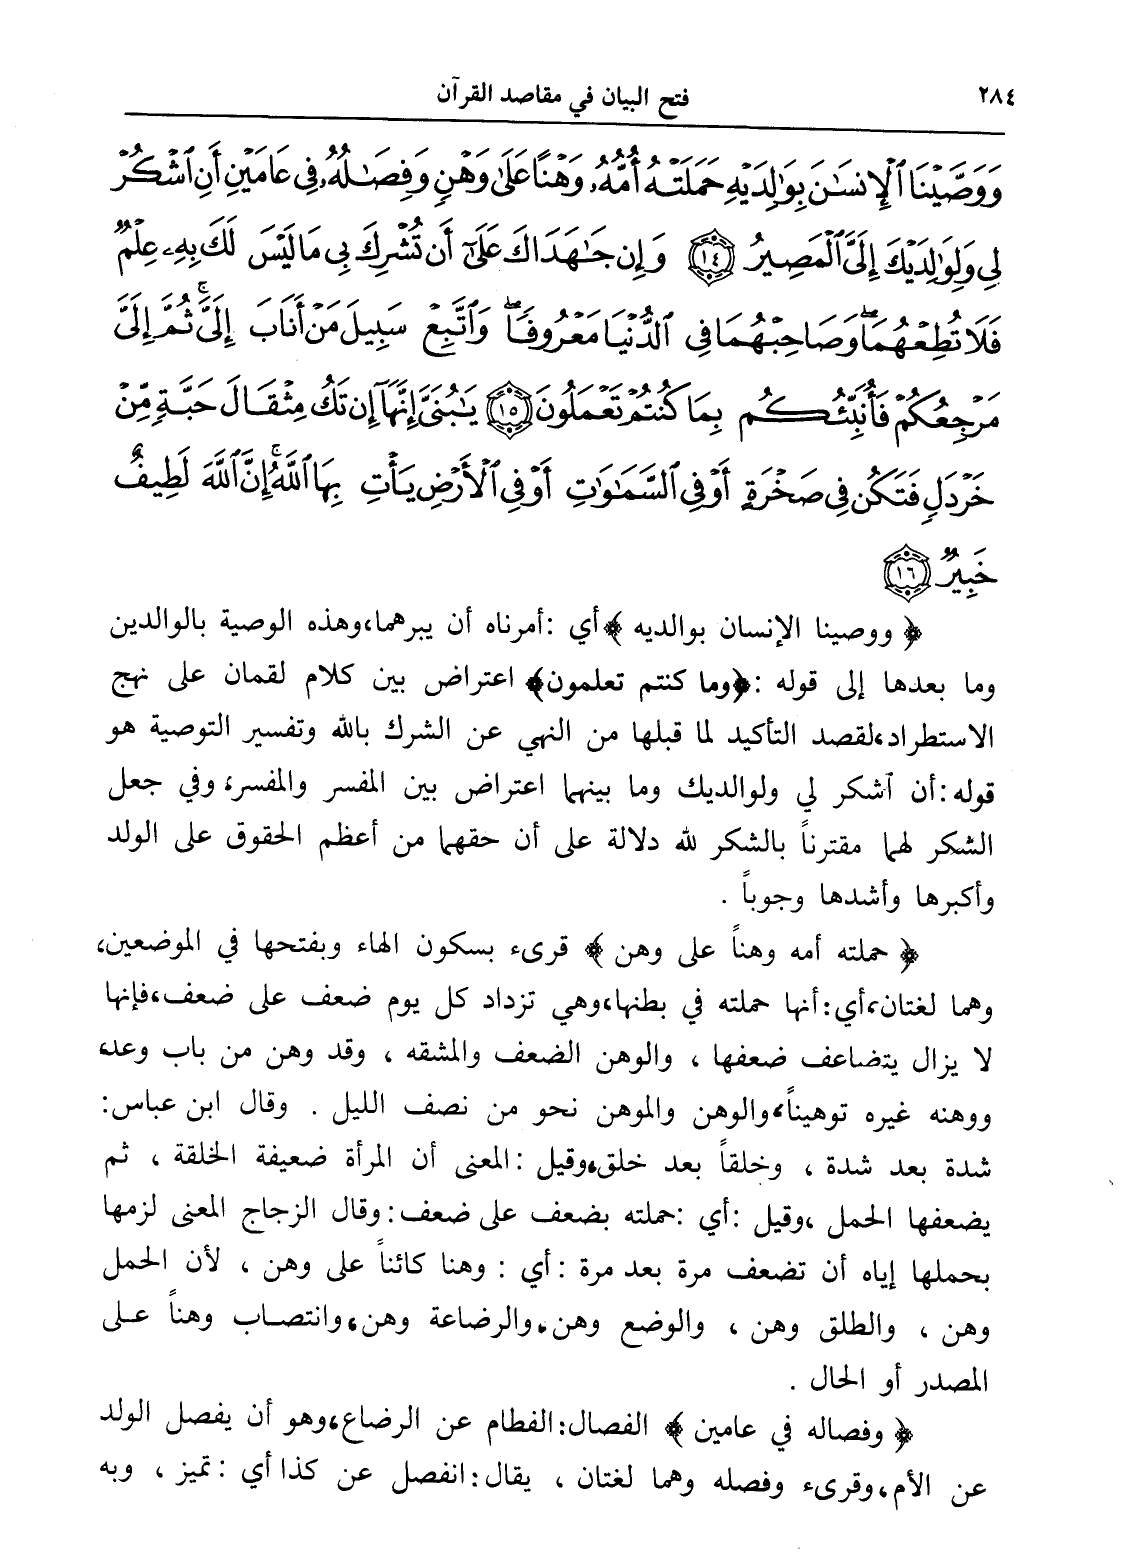 ٢٨٤ فتح البيان في مقاصد القرآن
وَوَصَّيْنَا ٱلْإِنسَٰنَ بِوَٰلِدَيْهِ حَمَلَتْهُ أُمُّهُۥ وَهْنًا عَلَىٰ وَهْنٍ وَفِصَٰلُهُۥ فِى عَامَيْنِ أَنِ ٱشْكُرْ
لِى وَلِوَٰلِدَيْكَ إِلَىَّ ٱلْمَصِيرُ ١٤ وَإِن جَٰهَدَاكَ عَلَىٰٓ أَن تُشْرِكَ بِى مَا لَيْسَ لَكَ بِهِۦ عِلْمٌ
فَلَا تُطِعْهُمَا ۖ وَصَاحِبْهُمَا فِى ٱلدُّنْيَا مَعْرُوفًا ۖ وَٱتَّبِعْ سَبِيلَ مَنْ أَنَابَ إِلَىَّ ۚ ثُمَّ إِلَىَّ
مَرْجِعُكُمْ فَأُنَبِّئُكُم بِمَا كُنتُمْ تَعْمَلُونَ ١٥ يَٰبُنَىَّ إِنَّهَآ إِن تَكُ مِثْقَالَ حَبَّةٍ مِّنْ
خَرْدَلٍ فَتَكُن فِى صَخْرَةٍ أَوْ فِى ٱلسَّمَٰوَٰتِ أَوْ فِى ٱلْأَرْضِ يَأْتِ بِهَا ٱللَّهُ ۚ إِنَّ ٱللَّهَ لَطِيفٌ
خَبِيرٌ ١٦
﴿ ووصينا الإنسان بوالديه ﴾ أي : أمرناه أن يبرهما، وهذه الوصية بالوالدين
وما بعدها إلى قوله : ﴿وما كنتم تعلمون﴾ اعتراض بين كلام لقمان على نهج
الاستطراد، لقصد التأكيد لما قبلها من النهي عن الشرك بالله وتفسير التوصية هو
قوله : أن ٱشكر لي ولوالديك وما بينهما اعتراض بين المفسر والمفسر، وفي جعل
الشكر لهما مقترناً بالشكر لله دلالة على أن حقهما من أعظم الحقوق على الولد
وأكبرها وأشدها وجوباً .
﴿ حملته أمه وهناً على وهن ﴾ قرىء بسكون الهاء وبفتحها في الموضعين،
وهما لغتان، أي : أنها حملته في بطنها، وهي تزداد كل يوم ضعف على ضعف، فإنها
لا يزال يتضاعف ضعفها ، والوهن الضعف والمشقه ، وقد وهن من باب وعد،
ووهنه غيره توهيناً، والوهن والموهن نحو من نصف الليل . وقال ابن عباس :
شدة بعد شدة ، وخلقاً بعد خلق، وقيل : المعنى أن المرأة ضعيفة الخلقة ، ثم
يضعفها الحمل ، وقيل : أي : حملته بضعف على ضعف : وقال الزجاج المعنى لزمها
بحملها إياه أن تضعف مرة بعد مرة : أي : وهنا كائناً على وهن ، لأن الحمل
وهن ، والطلق وهن ، والوضع وهن، والرضاعة وهن، وانتصاب وهناً على
المصدر أو الحال .
﴿ وفصاله في عامين ﴾ الفصال : الفطام عن الرضاع، وهو أن يفصل الولد
عن الأم، وقرىء وفصله وهما لغتان ، يقال : انفصل عن كذا أي : تميز ، وبه